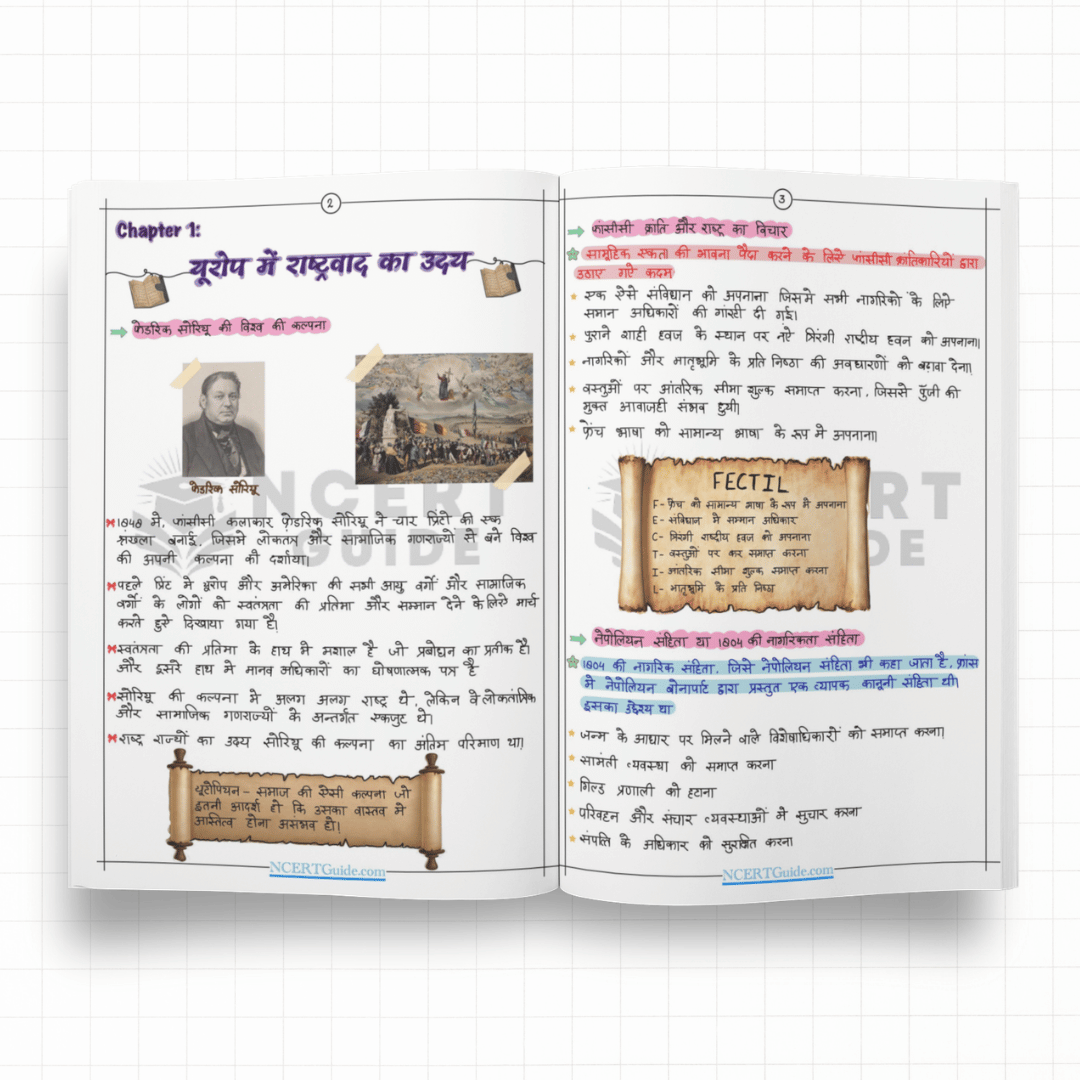 2
Chapter 1:
यूरोप में राष्ट्रवाद का उदय
फ्रेडरिक सोरियू की विश्व की कल्पना
फ्रेडरिक सोरियू
1848 में, फ्रांसीसी कलाकार फ्रेडरिक सोरियू ने चार प्रिंटो की एक
श्रृंखला बनाई, जिसमे लोकतंत्र और सामाजिक गणराज्यों से बने विश्व
की अपनी कल्पना की दर्शाया।
पहले प्रिंट मे यूरोप और अमेरिका की सभी आयु वर्गो और सामाजिक
वर्गो के लोगों को स्वतंत्रता की प्रतिमा और सम्मान देने के लिए मार्च
करते हुए दिखाया गया है।
स्वतंत्रता की प्रतिमा के हाथ मे मशाल है जो प्रबोधन का प्रतीक है।
और दूसरे हाथ मे मानव अधिकारों का घोषणात्मक पत्र है
सोरियू की कल्पना मे अलग अलग राष्ट्र थे, लेकिन वे लोकतांत्रिक
और सामाजिक गणराज्यों के अन्तर्गत एकजुट थे।
राष्ट्र राज्यों का उदय सोरियू की कल्पना का अंतिम परिमाण था।
यूटोपियन - समाज की ऐसी कल्पना जो
इतनी आदर्श हो कि उसका वास्तव मे
आस्तित्व होना असंभव हो।
NCERTGuide.com
NCERT
GUIDE
3
फ्रांसीसी क्रांति और राष्ट्र का विचार
सामूहिक एकता की भावना पैदा करने के लिए फ्रांसीसी क्रांतिकारियों द्वारा
उठाए गऐ कदम
एक ऐसे संविधान को अपनाना जिसमे सभी नागरिको के लिऐ
समान अधिकारों की गांरटी दी गई।
पुराने शाही ध्वज के स्थान पर नऐ त्रिरंगी राष्ट्रीय ध्वज को अपनाना।
नागरिकों और मातृभूमि के प्रति निष्ठा की अवधारणों को बढ़ावा देना।
वस्तुओं पर आंतरिक सीमा शुल्क समाप्त करना, जिससे पूँजी की
मुक्त आवाजही संभव हुयी।
फ्रेंच भाषा को सामान्य भाषा के रूप मे अपनाना।
FECTIL
F- फ्रेंच को सामान्य भाषा के रूप मे अपनाना
E- संविधान मे सम्मान अधिकार
C- त्रिरंगी राष्ट्रीय ध्वज को अपनाना
T- वस्तुओं पर कर समाप्त करना
I- आंतरिक सीमा शुल्क समाप्त करना
L- मातृभूमि के प्रति निष्ठा
नेपोलियन संहिता या 1804 की नागरिकता संहिता
1804 की नागरिक संहिता, जिसे नेपोलियन संहिता भी कहा जाता है, फ्रांस
मे नेपोलियन बोनापार्ट द्वारा प्रस्तुत एक व्यापक कानूनी संहिता थी।
इसका उद्देश्य था
जन्म के आधार पर मिलने वाले विशेषाधिकारों को समाप्त करना।
सामंती व्यवस्था को समाप्त करना
गिल्ड प्रणाली को हटाना
परिवहन और संचार व्यवस्थाओं मे सुधार करना
संपत्ति के अधिकार को सुरक्षित करना
NCERTGuide.com
NCERT
GUIDE